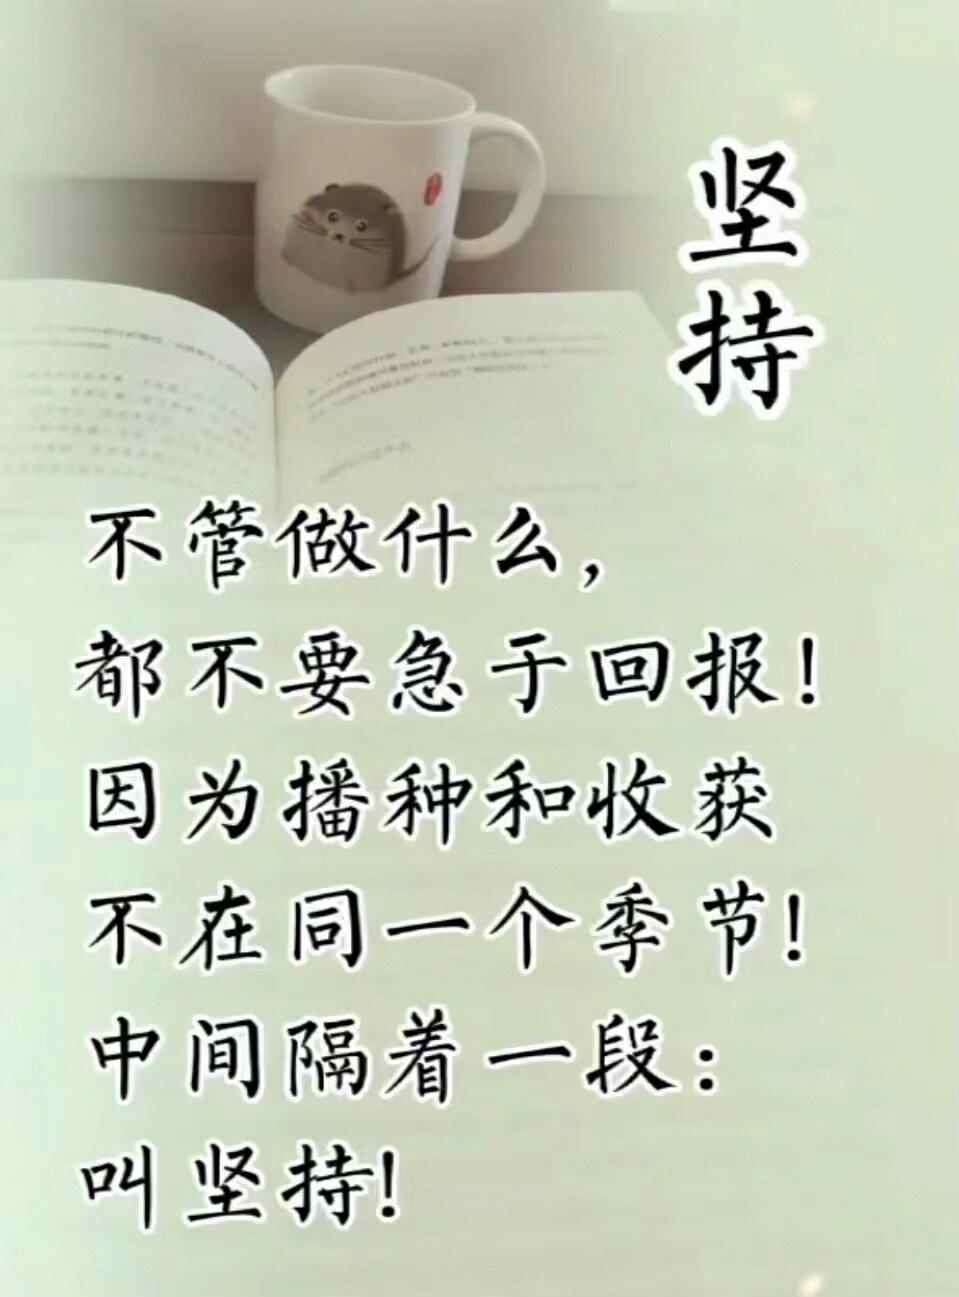 坚持
不管做什么,
都不要急于回报!
因为播种和收获
不在同一个季节!
中间隔着一段:
叫坚持!